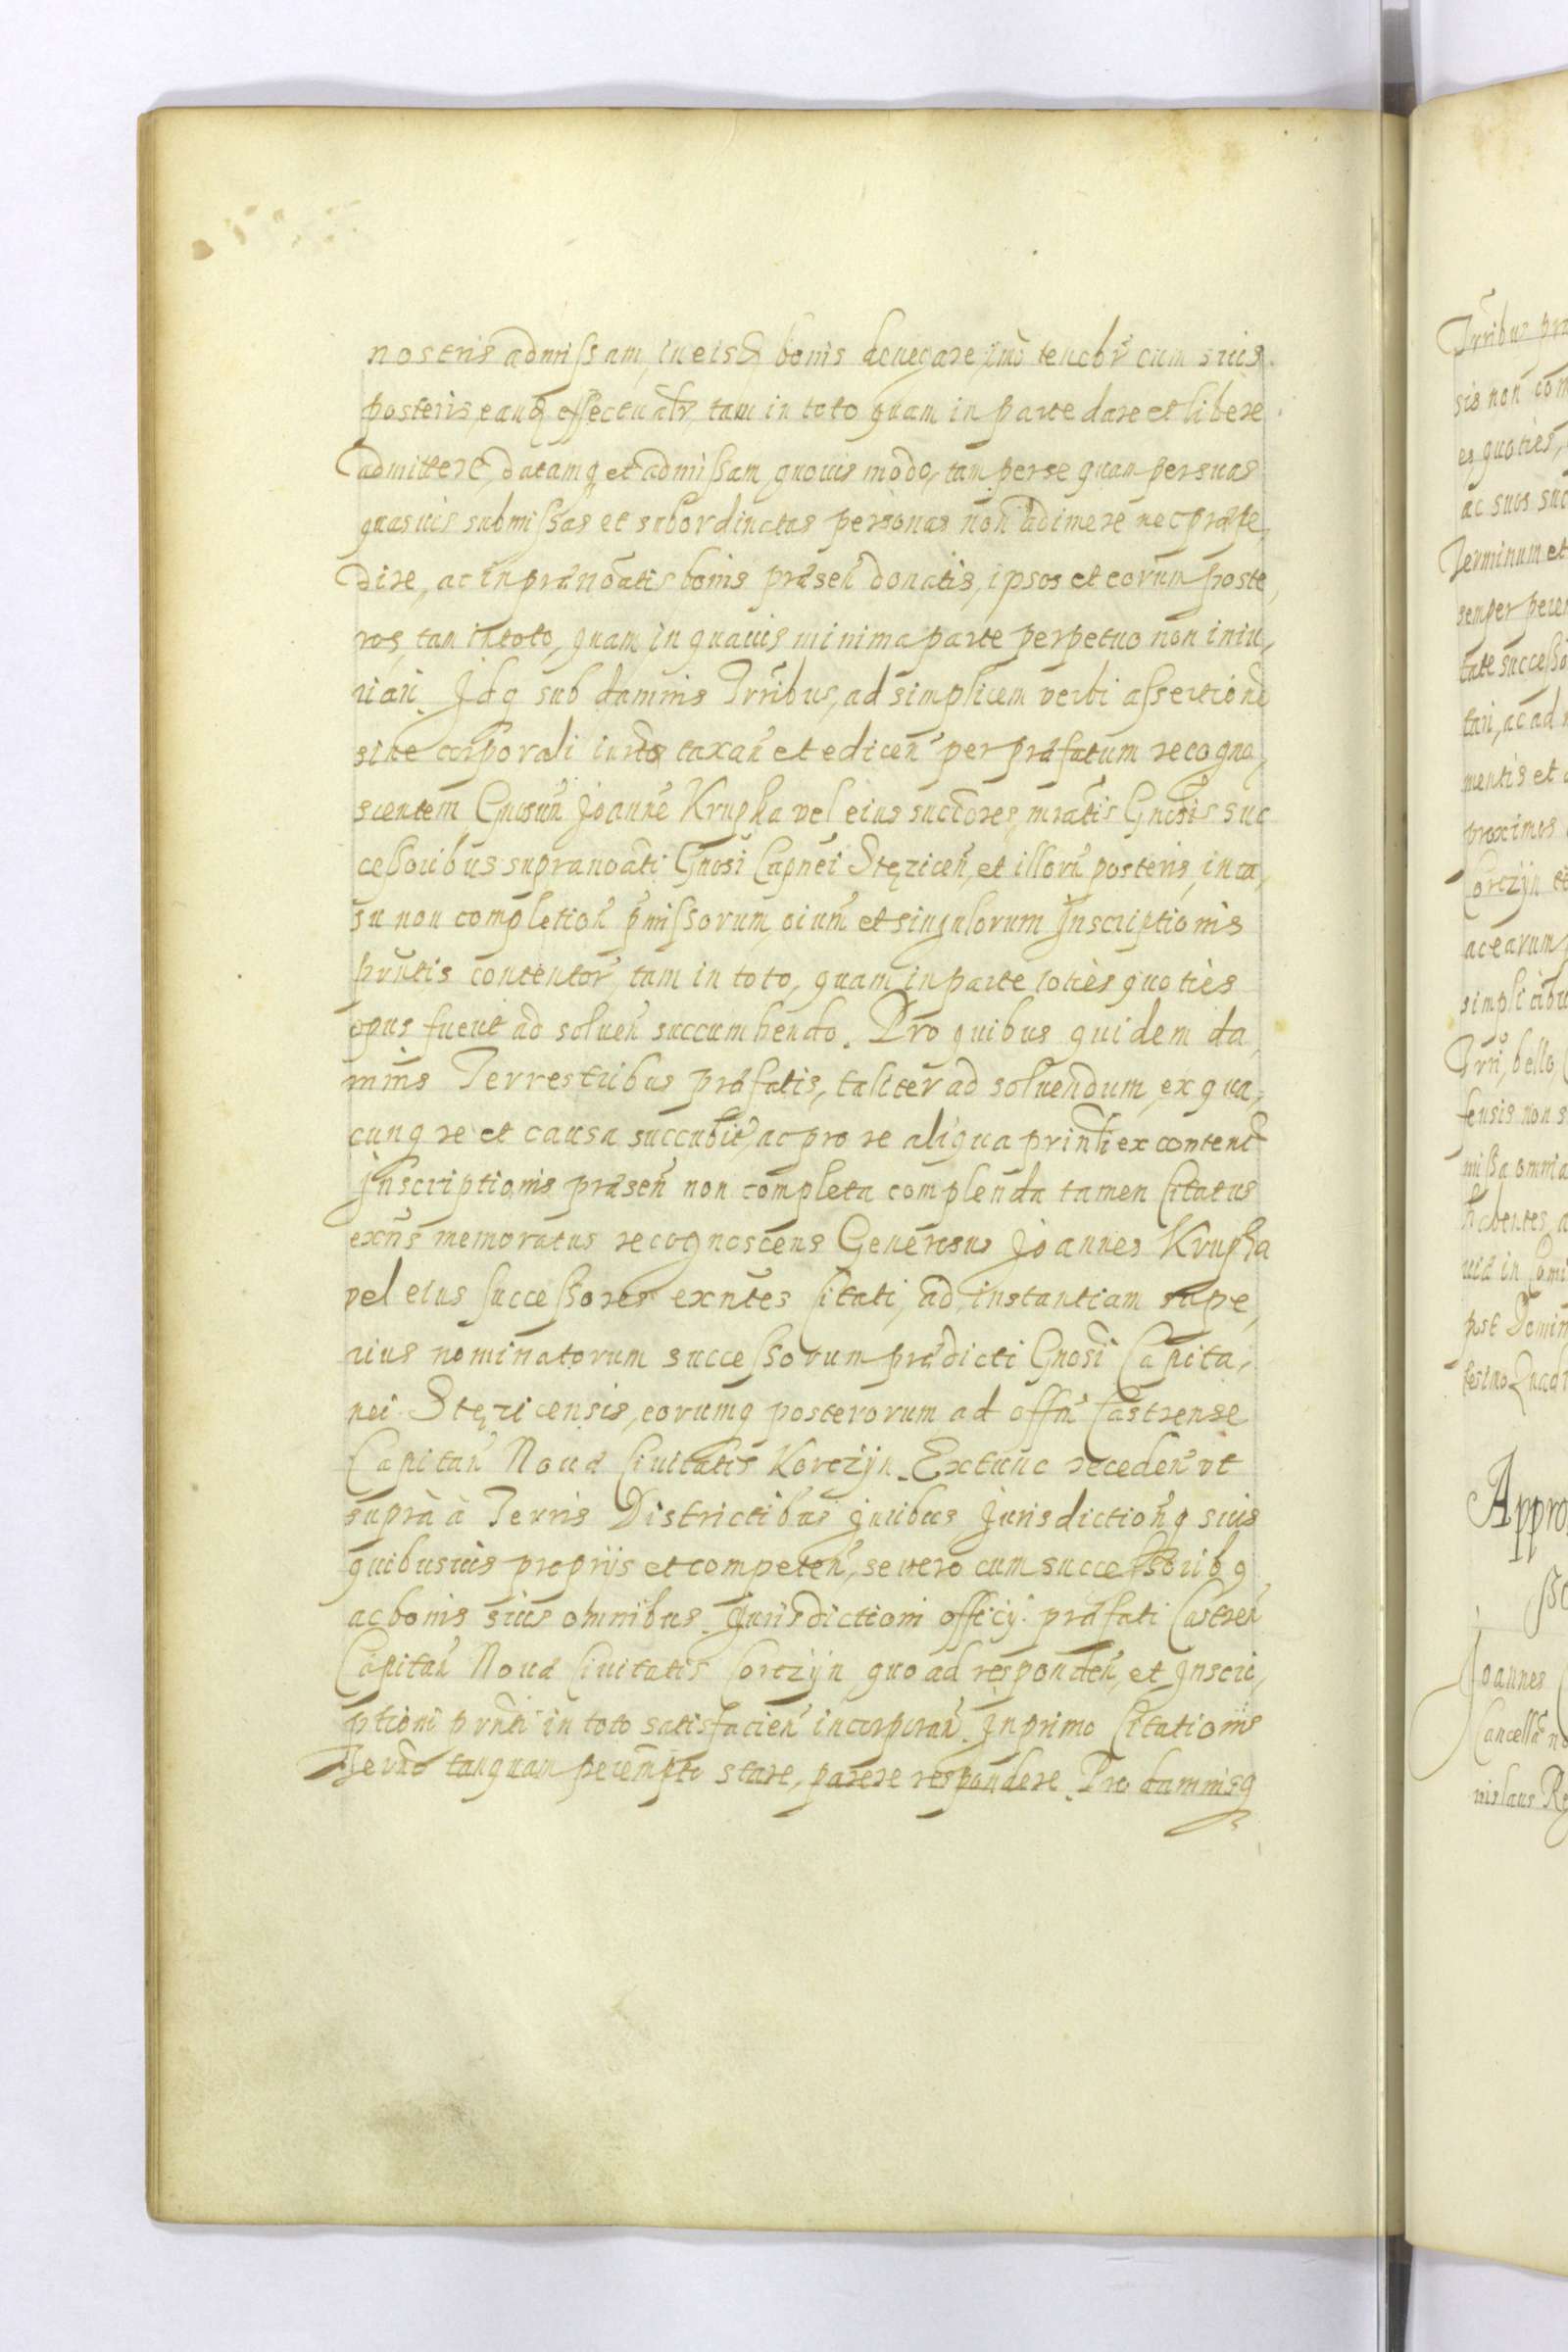 nostris admissam, in eisd bonis denegare, imo tenebr̃ cum suis
posteris, eand effectualr̃, tam in toto quam in parte dare et libere
admittere, datamq et admissam, quouis modo, tam per se quam per suas
quasuis submissas et subordinatas personas non adimere nec præpe,
dire, ac in prænoãtis bonis præseñ donatis, ipsos et eorum poste,
ros, tam in toto, quam in quauis minima parte perpetuo non iniu,
riari. Idq sub damnis Trr̃ibus, ad simplicem verbi assertionẽ
sine corporali iurto taxañ et ediceñ per præfatum recogno,
scentem Gñosum Joannẽ Krupka vel eius succores, mratis Gñosis suc
cessoribus supranoãti Gñosi Capnei Stęziceñ, et illorũ posteris, in ca,
su non completioñ p̃missorum, oium̃ et singulorum Inscriptionis
pñtis contentor̃, tam in toto, quam in parte toties quoties
opus fuerit ad solueñ succumbendo. Pro quibus quidem da,
mnis Terrestribus præfatis, taliter ad soluendum, ex qua,
cunq re et causa succubit̃, ac pro re aliqua prinli ex content
Inscriptionis præseñ non completa complenda tamen Citatus
exñs memoratus recognoscens Generosus Joannes Krupka
vel eius successores exñtes citati, ad instantiam supe,
rius nominatorum successorum prædicti Gñosi Capita,
nei Stęzicensis, eorumq posterorum ad offñ Castrense
Capitañ Nouæ Ciuitatis Korczÿn. Extunc recedeñ vt
suprà à Terris Districtibus quibus Jurisdictioñq suis
quibusuis propriis et competeñ, se vero cum successoribq
ac bonis suis omnibus. Jurisdictioni officÿ præfati Castreñ
Capitañ Nouæ Ciuitatis Corczÿn quo ad respondeñ, et Inscri,
ptioni prñti in toto satisfacieñ incorporañ. In primo Citationis
Termõ tanquam perempto stare, parere respondere. Pro damnisq
Trr̃ibus
sis non
es quoties,
ac suos suc
Terminum et
semper
tate successo
tari, ac ad
mentis et
proximos
Corczÿn et
ac earum
simplicibu
Trr̃i, bello,
fensis non s
missa omnia
habentes, a
post Domin
Appro
Joannes
Cancell
nislaus Re